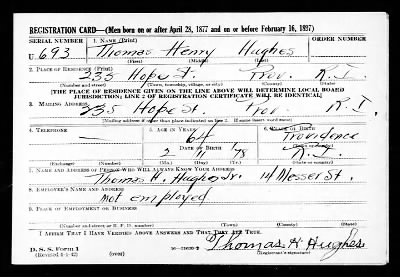 REGISTRATION CARD—(Men born on or after April 28, 1877 and on or before February 16, 1897)
SERIAL NUMBER 1. NAME (Print) ORDER NUMBER
U 693 Thomas Henry Hughes
(First) (Middle) (Last)
2. PLACE OF RESIDENCE (Print)
235 Hope St. Prov. R. I.
(Number and street) (Town, township, village, or city) (County) (State)
[THE PLACE OF RESIDENCE GIVEN ON THE LINE ABOVE WILL DETERMINE LOCAL BOARD
JURISDICTION; LINE 2 OF REGISTRATION CERTIFICATE WILL BE IDENTICAL]
3. MAILING ADDRESS
235 Hope St. Prov. R. I.
[Mailing address if other than place indicated on line 2. If same insert word same]
4. TELEPHONE 5. AGE IN YEARS 6. PLACE OF BIRTH
64 Providence
DATE OF BIRTH (Town or county)
2 11 78 R. I.
(Exchange) (Number) (Mo.) (Day) (Yr.) (State or country)
7. NAME AND ADDRESS OF PERSON WHO WILL ALWAYS KNOW YOUR ADDRESS
Thomas H. Hughes Jr. 14 Messer St.
8. EMPLOYER'S NAME AND ADDRESS
not employed
9. PLACE OF EMPLOYMENT OR BUSINESS
(Number and street or R. F. D. number) (Town) (County) (State)
I AFFIRM THAT I HAVE VERIFIED ABOVE ANSWERS AND THAT THEY ARE TRUE.
Thomas H Hughes
D. S. S. Form 1 (Registrant's signature)
(Revised 4-1-42) (over)